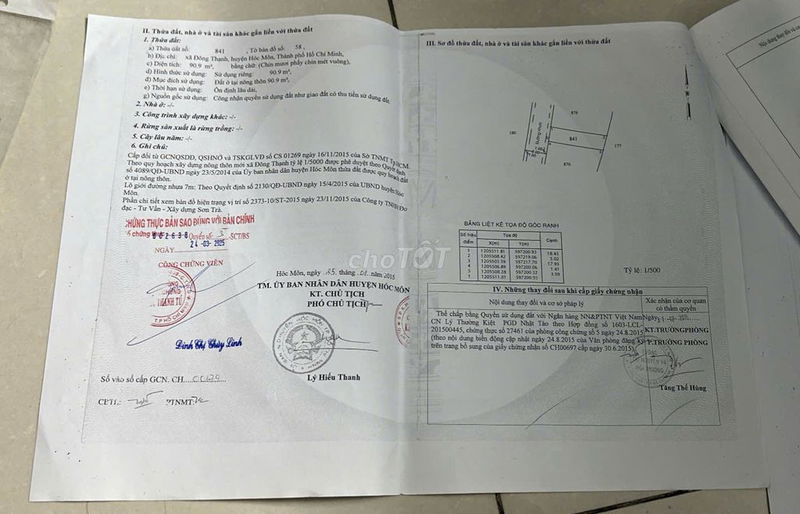 II. Thửa đất, nhà ở và tài sản khác gắn liền với thửa đất
1. Thửa đất:
a) Thửa đất số: 841 , Tờ bản đồ số: 58 ,
b) Địa chỉ: xã Đông Thạnh, huyện Hóc Môn, Thành phố Hồ Chí Minh,
c) Diện tích: 90.9 m², bằng chữ: (Chín mươi phẩy chín mét vuông),
d) Hình thức sử dụng: Sử dụng riêng 90.9 m²,
đ) Mục đích sử dụng: Đất ở tại nông thôn 90.9 m²,
e) Thời hạn sử dụng: Ổn định lâu dài,
g) Nguồn gốc sử dụng: Công nhận quyền sử dụng đất như giao đất có thu tiền sử dụng đất.
2. Nhà ở: -/-
3. Công trình xây dựng khác: -/-
4. Rừng sản xuất là rừng trồng: -/-
5. Cây lâu năm: -/-
6. Ghi chú:
Cấp đổi từ GCNQSDĐ, QSHNỞ và TSKGLVĐ số CS 01269 ngày 16/11/2015 của Sở TNMT Tp.HCM.
Theo quy hoạch xây dựng nông thôn mới xã Đông Thạnh tỷ lệ 1/5000 được phê duyệt theo Quyết định
số 4089/QĐ-UBND ngày 23/5/2014 của Ủy ban nhân dân huyện Hóc Môn thửa đất được quy hoạch đất
ở tại nông thôn.
Lộ giới đường nhựa 7m: Theo Quyết định số 2130/QĐ-UBND ngày 15/4/2015 của UBND huyện Hóc
Môn.
Phần chi tiết xem bản đồ hiện trạng vị trí số 2373-10/ST-2015 ngày 23/11/2015 của Công ty TNHH Đo
đạc - Tư Vấn - Xây dựng Sơn Trà.
CHỨNG THỰC BẢN SAO ĐÚNG VỚI BẢN CHÍNH
Số chứng 002638 Quyển số 5 -SCT/BS
NGÀY 24-03-2025
CÔNG CHỨNG VIÊN
Đinh Thị Thùy Linh
Hóc Môn, ngày 05 tháng 01 2016
TM. ỦY BAN NHÂN DÂN HUYỆN HÓC MÔN
KT. CHỦ TỊCH
PHÓ CHỦ TỊCH
Lý Hiếu Thanh
Số vào sổ cấp GCN: CH
III. Sơ đồ thửa đất, nhà ở và tài sản khác gắn liền với thửa đất
879
180
Đường nhựa
841
177
876
BẢNG LIỆT KÊ TỌA ĐỘ GÓC RANH
Số hiệu điểm Tọa độ Cạnh
X(m) Y(m)
Tỷ lệ: 1/500
IV. Những thay đổi sau khi cấp giấy chứng nhận
Nội dung thay đổi và cơ sở pháp lý
Xác nhận của cơ quan
có thẩm quyền
Thế chấp bằng Quyền sử dụng đất với Ngân hàng NN&PTNT Việt Nam
CN Lý Thường Kiệt PGD Nhật Tảo theo Hợp đồng số 1603-LCL-
201500445, chứng thực số 27461 của phòng công chứng số 5 ngày 24.8.2015
(theo nội dung biến động cập nhật ngày 24.8.2015 của Văn phòng đăng ký
trên trang bổ sung của giấy chứng nhận CH00697 cấp ngày 30.6.2015)
KT.TRƯỞNG PHÒNG
P.TRƯỞNG PHÒNG
Tăng Thế Hùng
choTỐT